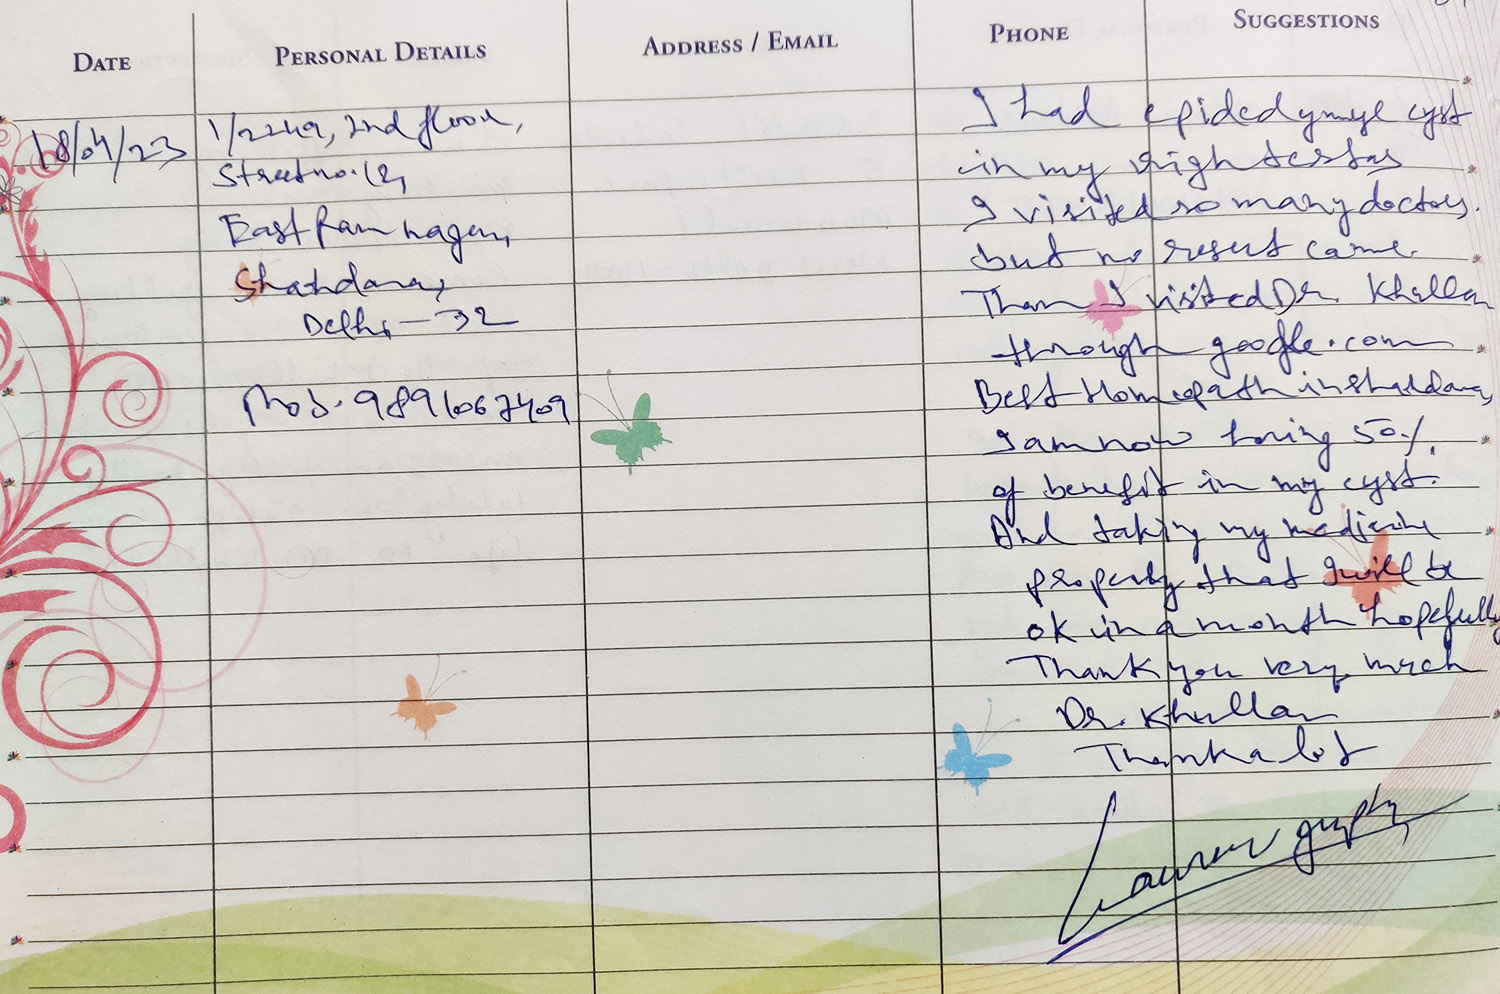 DATE
PERSONAL DETAILS
ADDRESS / EMAIL
PHONE
SUGGESTIONS
18/04/23
1/2249, 2nd floor,
Street no. 12,
East Ram nagar,
Shahdara,
Delhi - 32
Mob. 9891067409
I had epidedymye cyst
in my righ testas
I visited so many doctors.
but no result came.
Than I visited Dr. Khullan
through google.com
Best Homepath in shahdara,
I am now having 50%.
of benefit in my cyst.
And taking my medicine
properly that I will be
ok in a month hopefully
Thank you very much
Dr. Khullan
Thanks a lot
Gaurav gupta